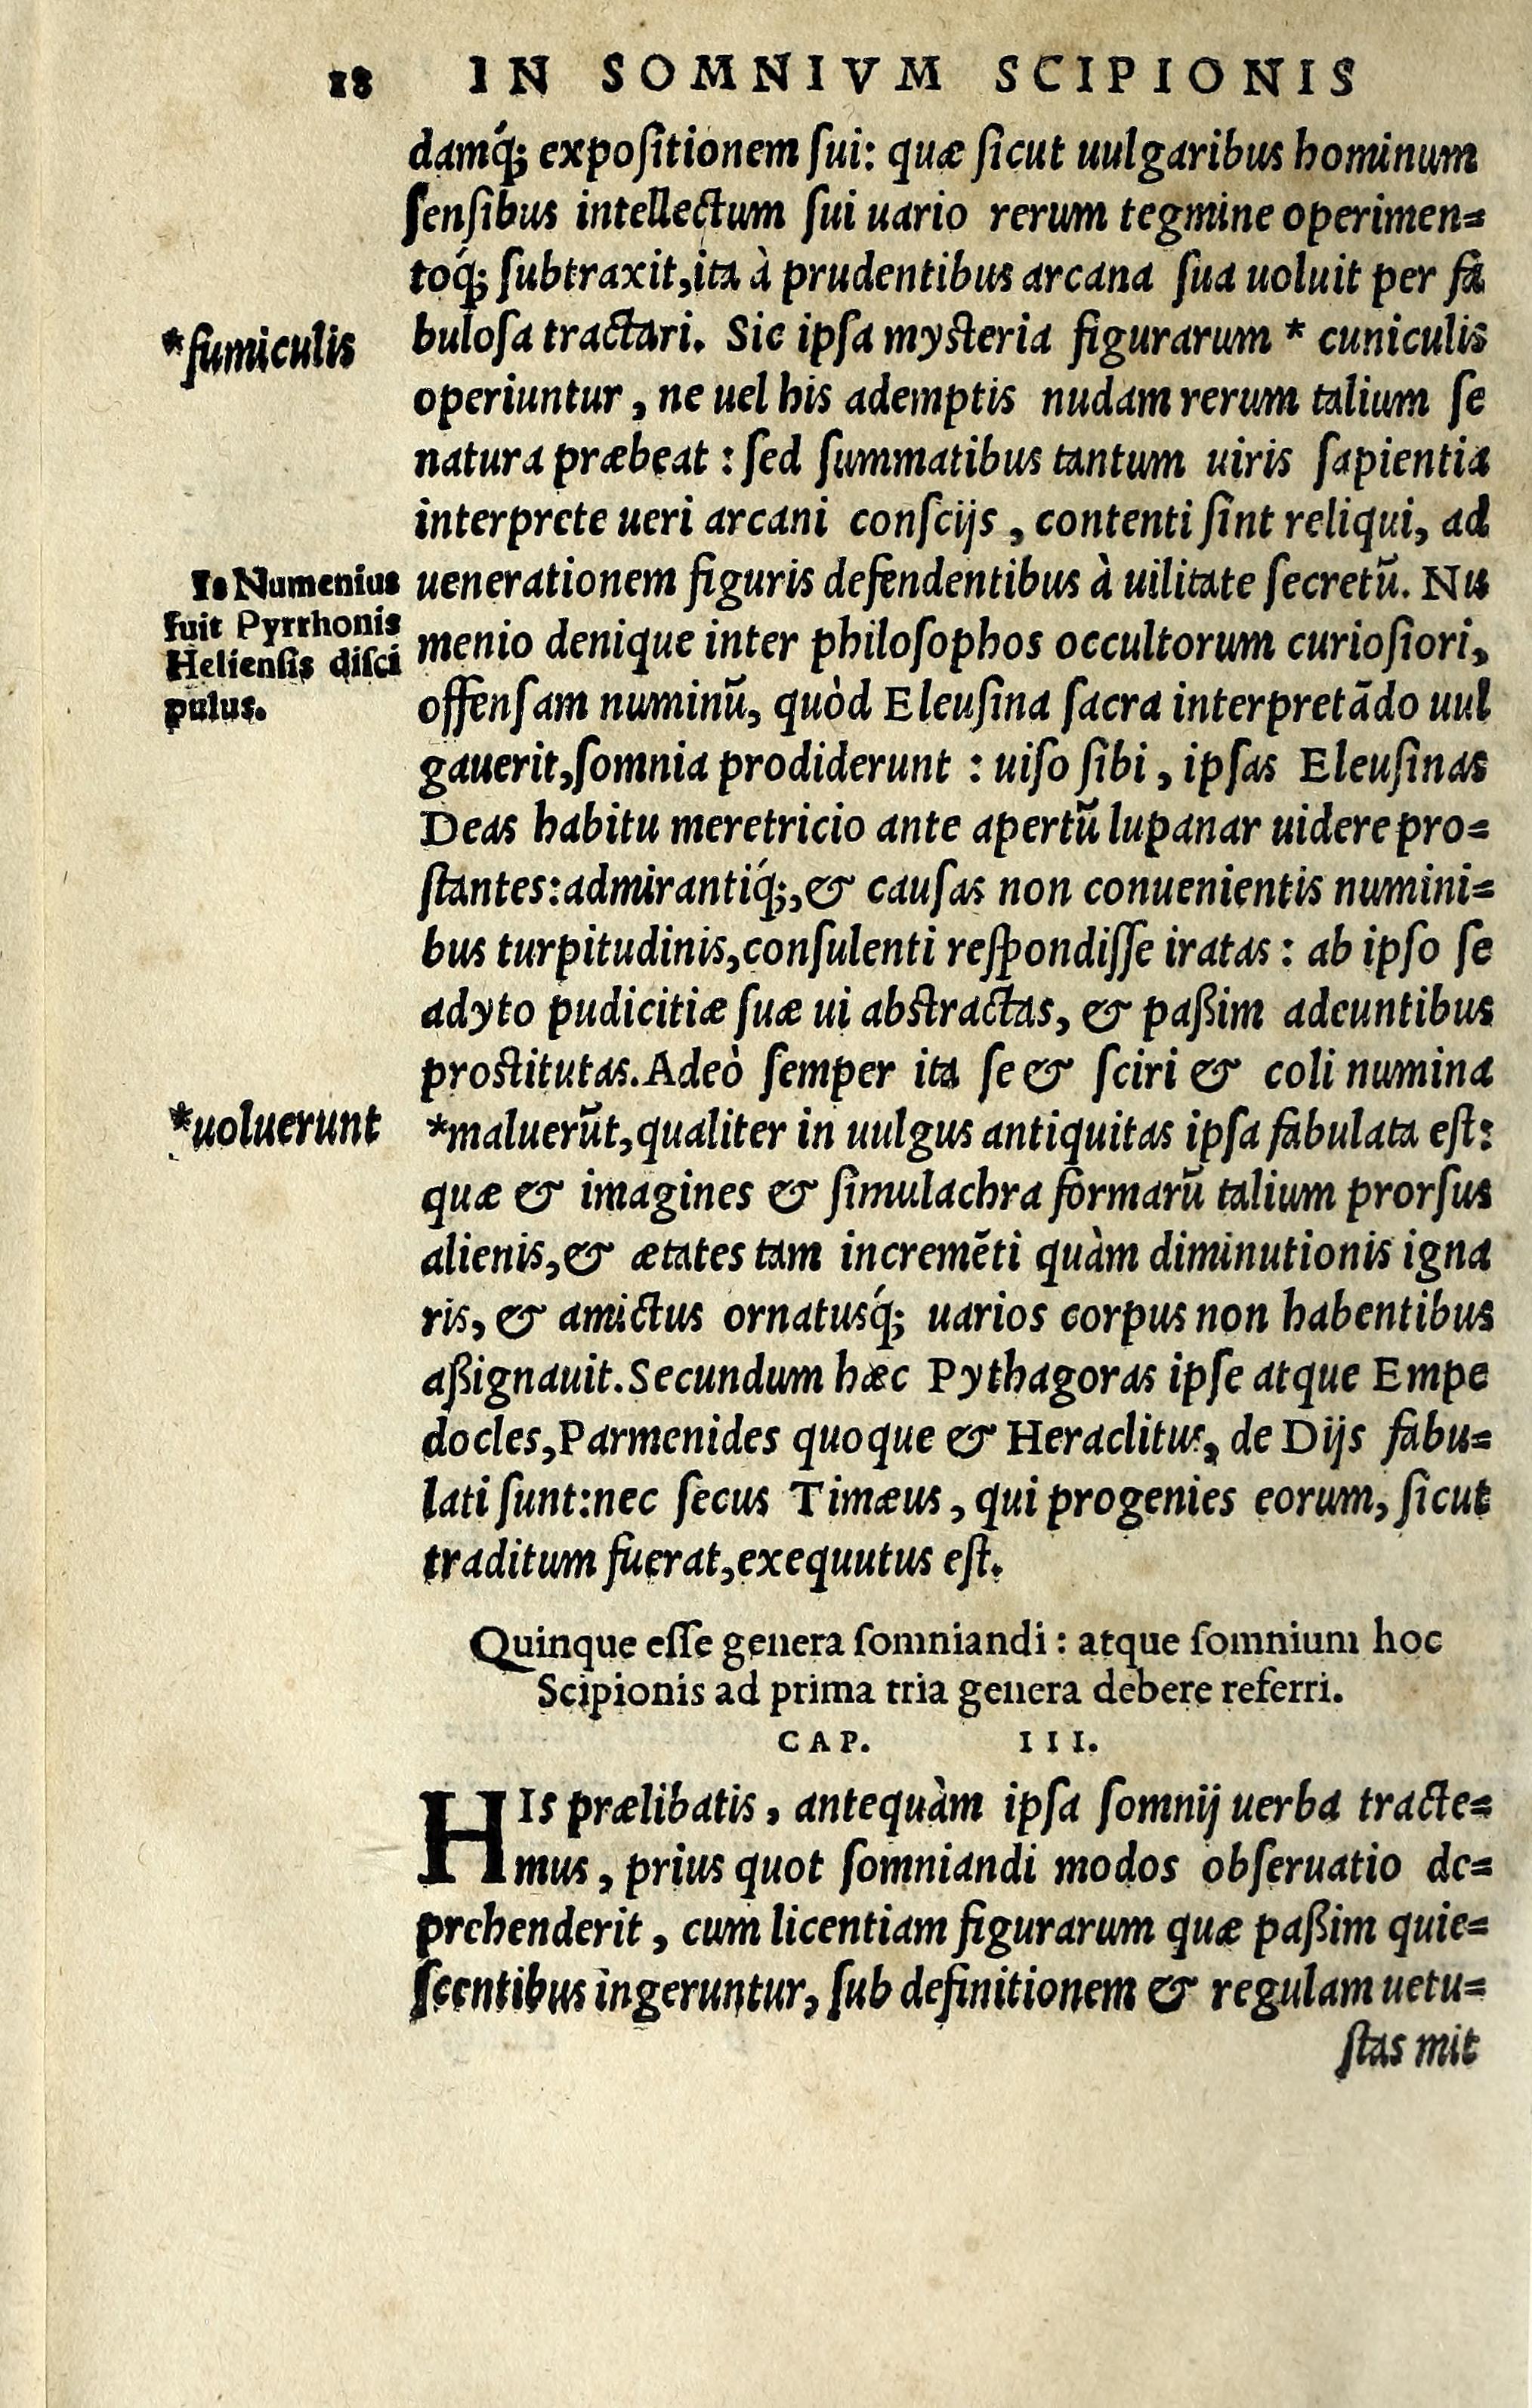 18 IN SOMNIVM SCIPIONIS
damq́; expoſitionem ſui: quæ ſicut uulgaribus hominum
ſenſibus intellectum ſui uario rerum tegmine operimen=
toq́; ſubtraxit, ita à prudentibus arcana ſua uoluit per fa
*fumiculis
buloſa tractari. Sic ipſa myſteria figurarum * cuniculis
operiuntur, ne uel his ademptis nudam rerum talium ſe
natura præbeat: ſed ſummatibus tantum uiris ſapientia
interprete ueri arcani conſcijs, contenti ſint reliqui, ad
Is Numenius
fuit Pyrrhonis
Helienſis diſci
pulus.
uenerationem figuris defendentibus à uilitate ſecretū. Nu
menio denique inter philoſophos occultorum curioſiori,
offenſam numinū, quòd Eleuſina ſacra interpretādo uul
gauerit, ſomnia prodiderunt: uiſo ſibi, ipſas Eleuſinas
Deas habitu meretricio ante apertū lupanar uidere pro=
ſtantes: admirantiq́;, & cauſas non conuenientis numini=
bus turpitudinis, conſulenti reſpondiſſe iratas: ab ipſo ſe
adyto pudicitiæ ſuæ ui abſtractas, & paßim adeuntibus
proſtitutas. Adeò ſemper ita ſe & ſciri & coli numina
*uoluerunt
*maluerūt, qualiter in uulgus antiquitas ipſa fabulata eſt:
quæ & imagines & ſimulachra formarū talium prorſus
alienis, & ætates tam incremēti quàm diminutionis igna
ris, & amictus ornatusq́; uarios corpus non habentibus
aßignauit. Secundum hæc Pythagoras ipſe atque Empe
docles, Parmenides quoque & Heraclitus, de Dijs fabu=
lati ſunt: nec ſecus Timæus, qui progenies eorum, ſicut
traditum fuerat, exequutus eſt.
Quinque eſſe genera ſomniandi: atque ſomnium hoc
Scipionis ad prima tria genera debere referri.
CAP. III.
HIs prælibatis, antequàm ipſa ſomnij uerba tracte=
mus, prius quot ſomniandi modos obſeruatio de=
prehenderit, cum licentiam figurarum quæ paßim quie=
ſcentibus ingeruntur, ſub definitionem & regulam uetu=
ſtas mit